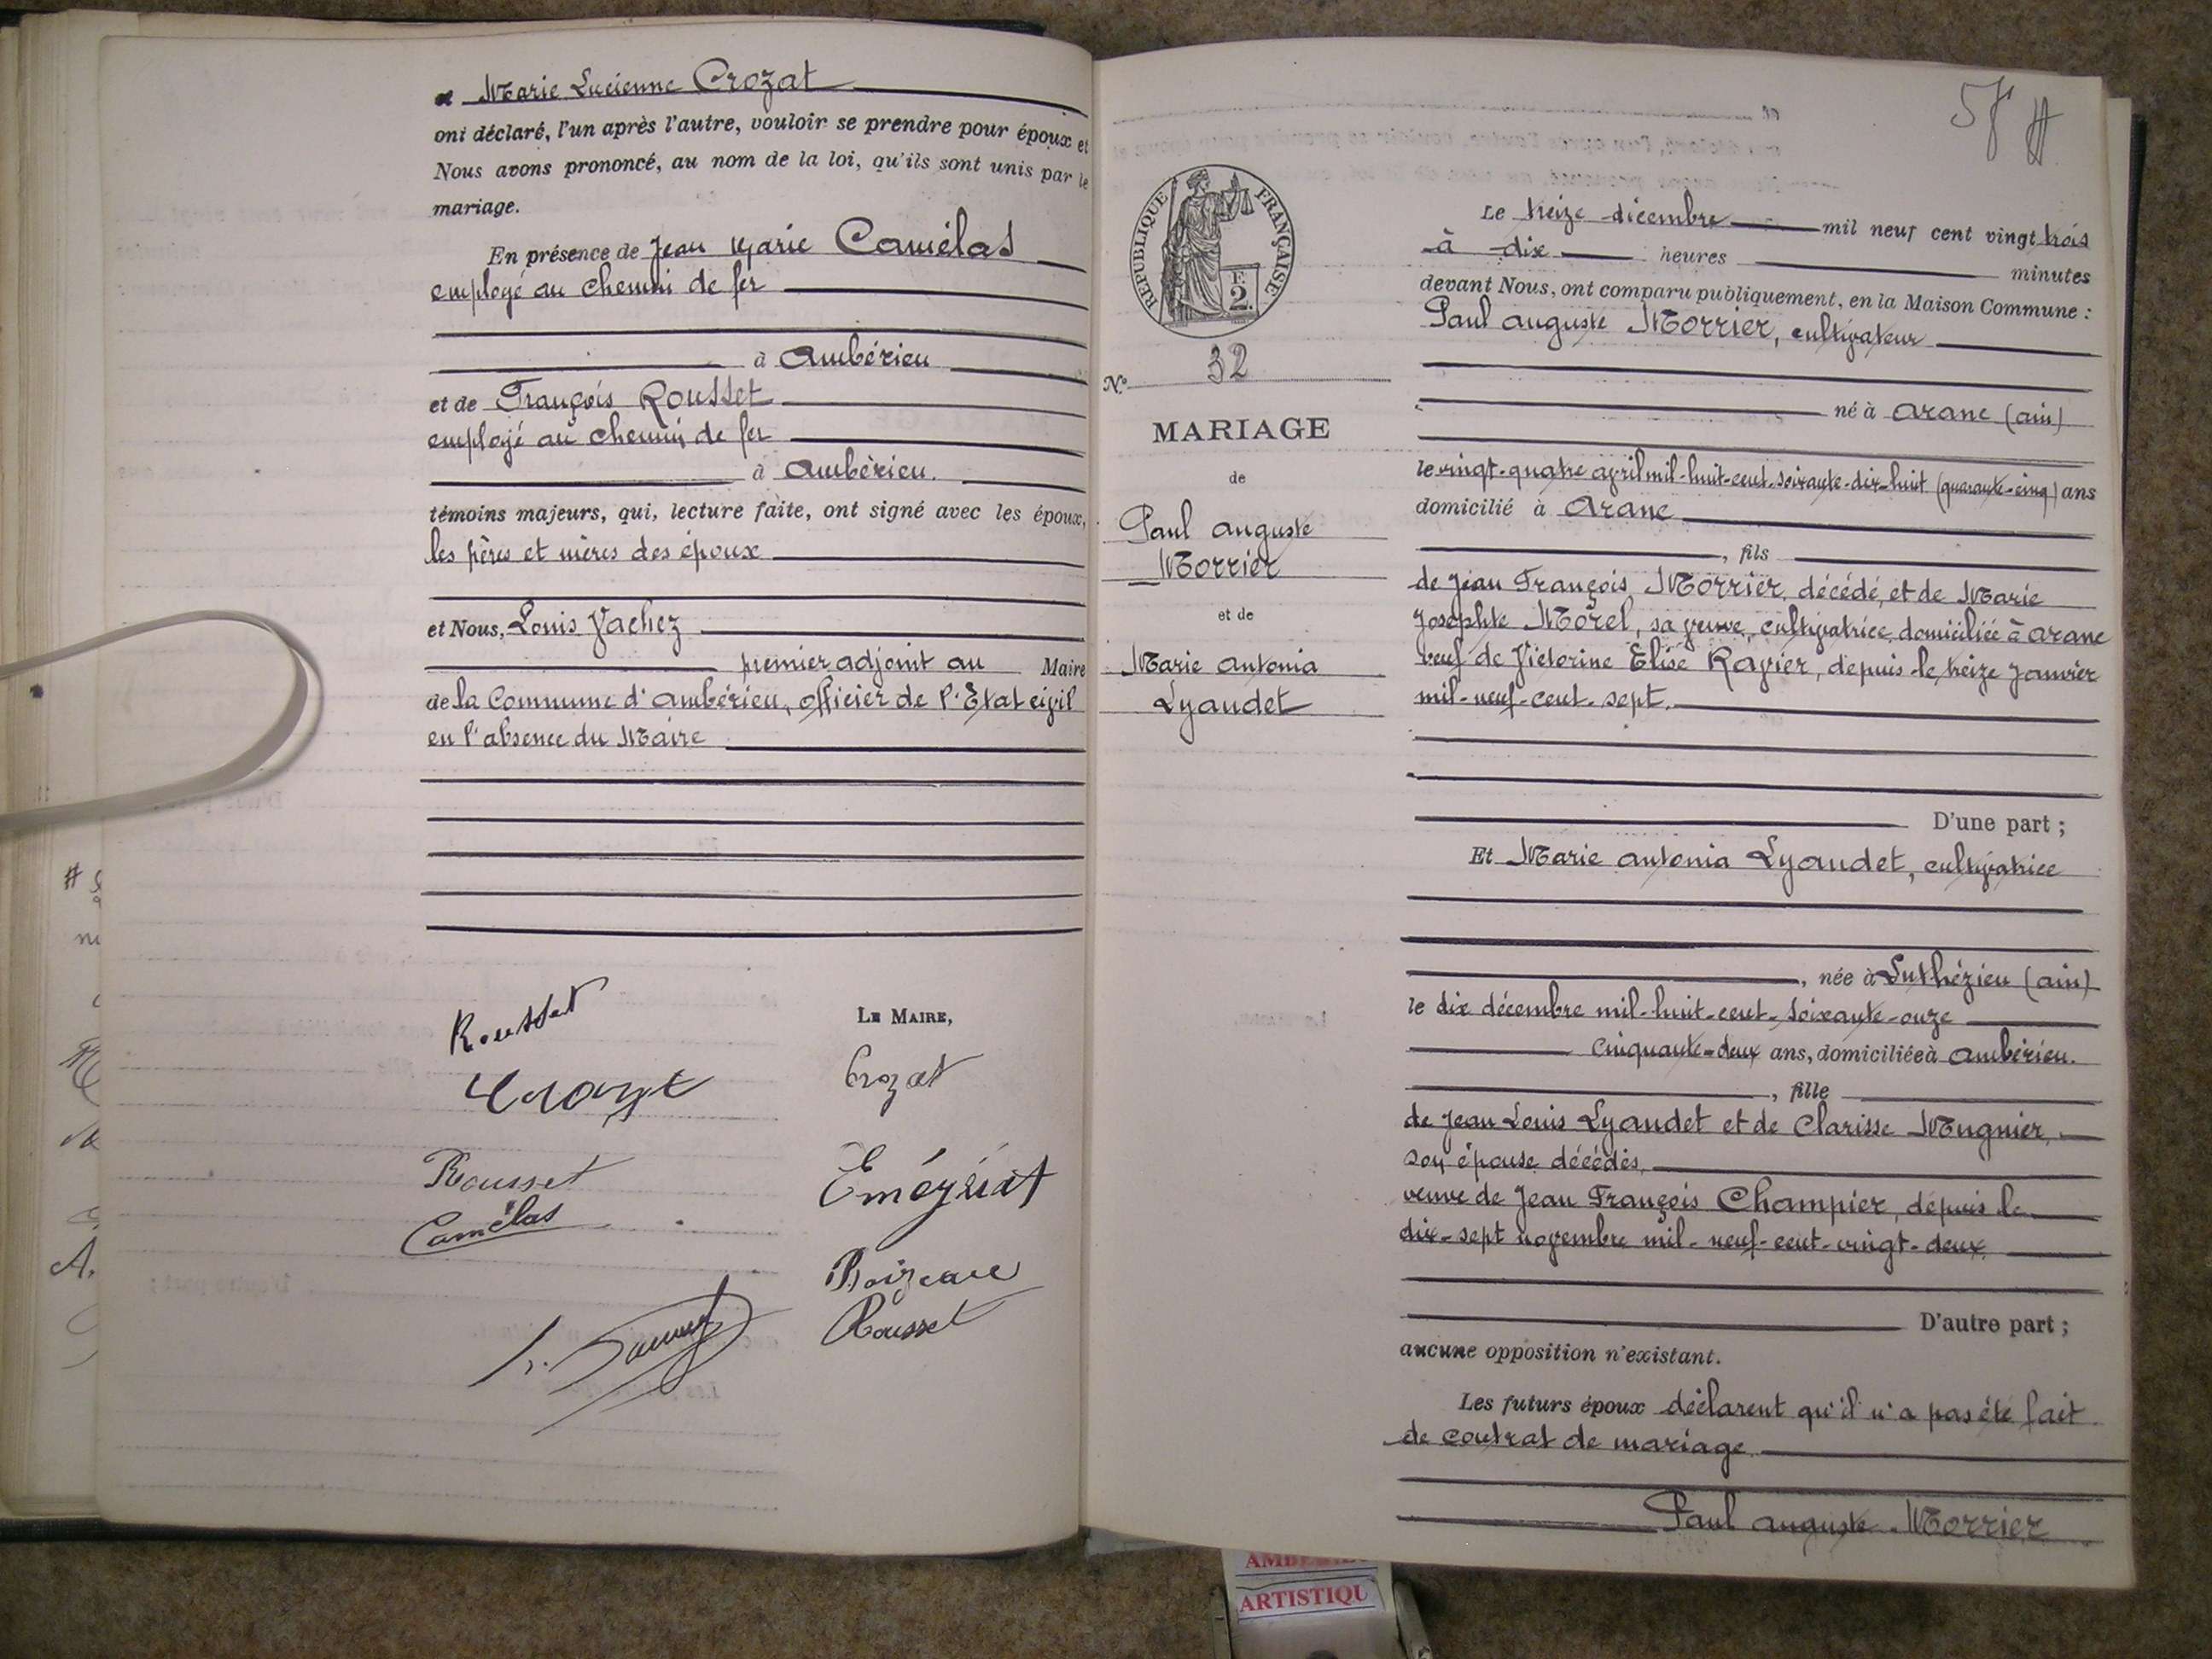 et Marie Lucienne Crozat
ont déclaré, l'un après l'autre, vouloir se prendre pour époux et
Nous avons prononcé, au nom de la loi, qu'ils sont unis par le
mariage.
En présence de Jean Marie Camélas
employé au chemin de fer
à Ambérieu
et de François Rousset
employé au chemin de fer
à Ambérieu.
témoins majeurs, qui, lecture faite, ont signé avec les époux,
les pères et mères des époux
et Nous, Louis Vachez
premier adjoint au Maire
de la Commune d'Ambérieu, officier de l'Etat civil
en l'absence du Maire
LE MAIRE,
Rousset
Crozat
Crozat
Rousset
Camélas
Eméziat
Rousset
57
RÉPUBLIQUE FRANÇAISE
E
2.
N° 32
MARIAGE
de
Paul Auguste
Morrier
et de
Marie Antonia
Lyaudet
Le treize décembre mil neuf cent vingt trois
à dix heures minutes
devant Nous, ont comparu publiquement, en la Maison Commune :
Paul Auguste Morrier, cultivateur
né à Aranc (Ain)
le vingt-quatre avril mil-huit-cent-soixante-dix-huit (quarante-cinq) ans
domicilié à Aranc
, fils
de Jean François Morrier, décédé, et de Marie
Josephte Morel, sa veuve, cultivatrice, domiciliée à Aranc
veuf de Victorine Elise Ravier, depuis le treize Janvier
mil-neuf-cent-sept.
D'une part ;
Et Marie Antonia Lyaudet, cultivatrice
, née à Luthézieu (Ain)
le dix décembre mil-huit-cent-soixante-onze
cinquante-deux ans, domiciliée à Ambérieu.
, fille
de Jean Louis Lyaudet et de Clarisse Mugnier,
son épouse décédés,
veuve de Jean François Champier, depuis le
dix-sept novembre mil-neuf-cent-vingt-deux
D'autre part ;
aucune opposition n'existant.
Les futurs époux déclarent qu'il n'a pas été fait
de contrat de mariage
Paul Auguste Morrier
ARTISTIQU